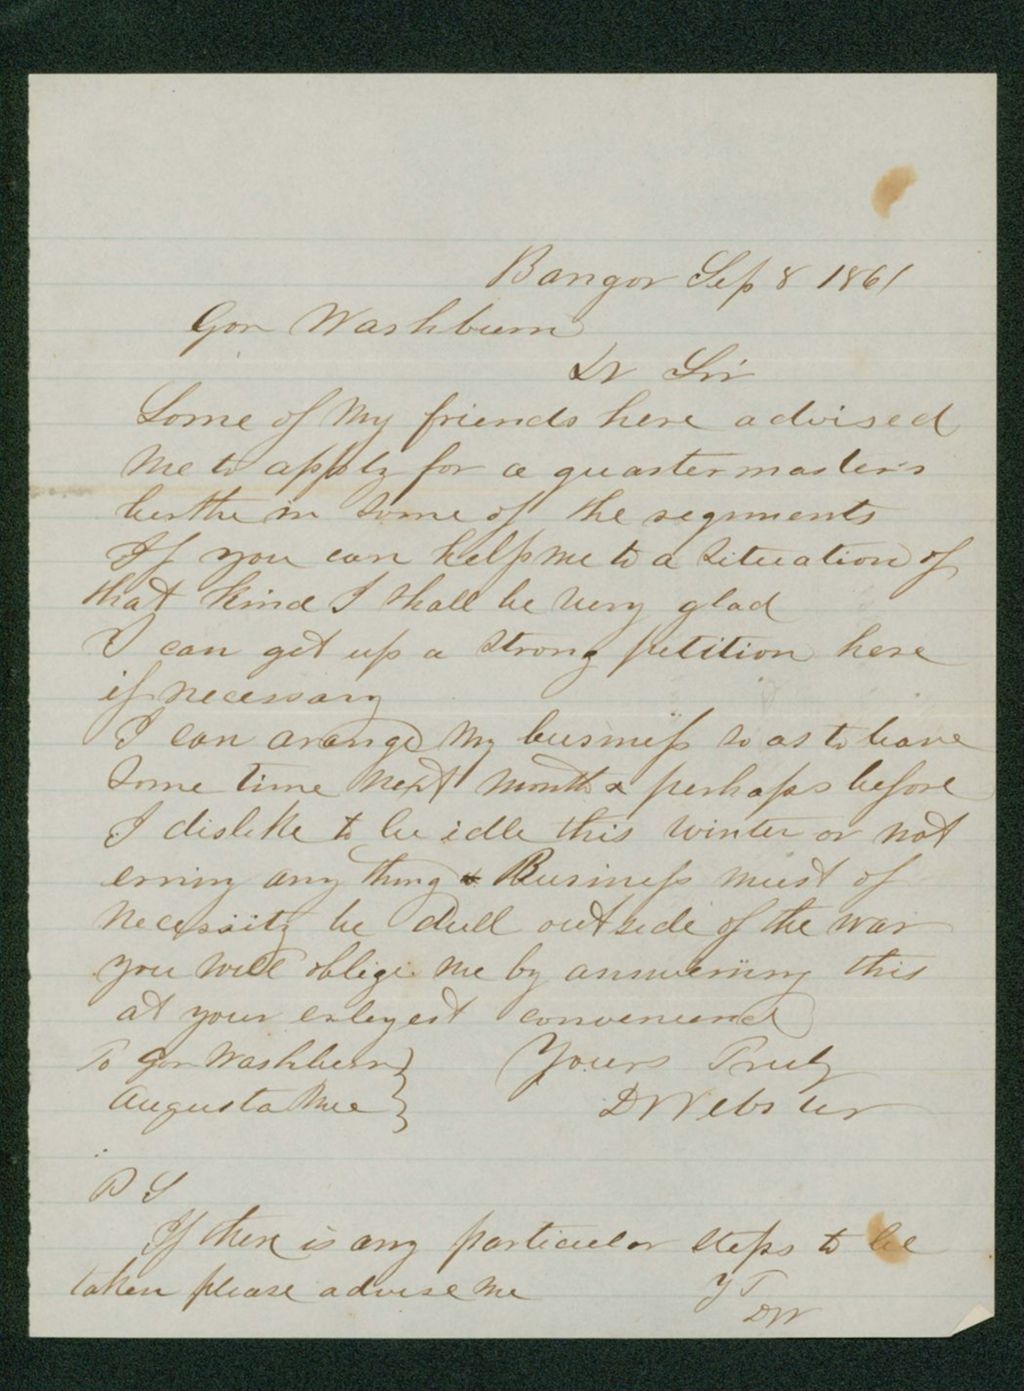 Bangor Sep 8 1861
Gov Washburn
Dr Sir
Some of my friends here advised
me to apply for a quartermasters
berthe in some of the regiments
If you can help me to a situation of
that kind I shall be very glad
I can get up a strong petition here
if necessary
I can arange my business so as to leave
some time next month & perhaps before
I dislike to be idle this winter or not
erning any thing & Business must of
necessity be dull outside of the war
you will oblige me by answering this
at your erleyest convenience
To Gov Washburn
Augusta Me
Yours Truly
D Webster
P S
If there is any particular steps to be
taken please advise me
Y T
DW